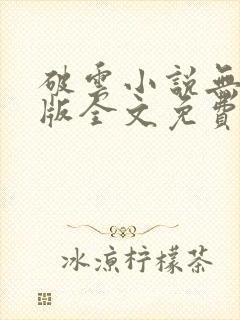 破雲小説無
版全文免費
冰涼柠檬茶